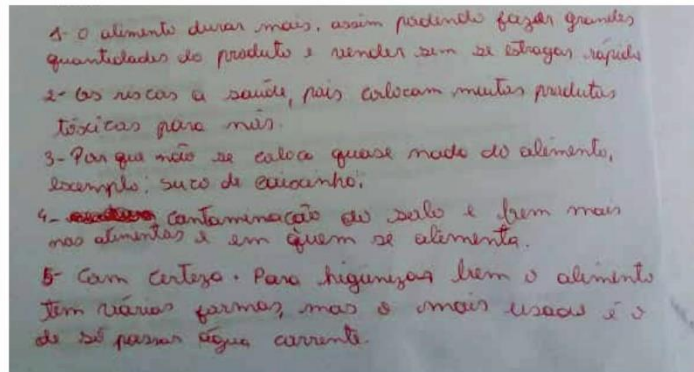 1- o alimento durar mais, assim podendo fazer grandes
quantidades do produto e vender sem se estragar rápido
2- Os riscos a saúde, pois colocam muitos produtos
tóxicos para nós.
3- Por que não se coloca quase nada do alimento,
exemplo: suco de caixinha;
4- contaminação do solo e bem mais
nos alimentos e em quem se alimenta.
5- Com certeza. Para higienizar bem o alimento
tem várias formas, mas o mais usado é o
de só passar água corrente.